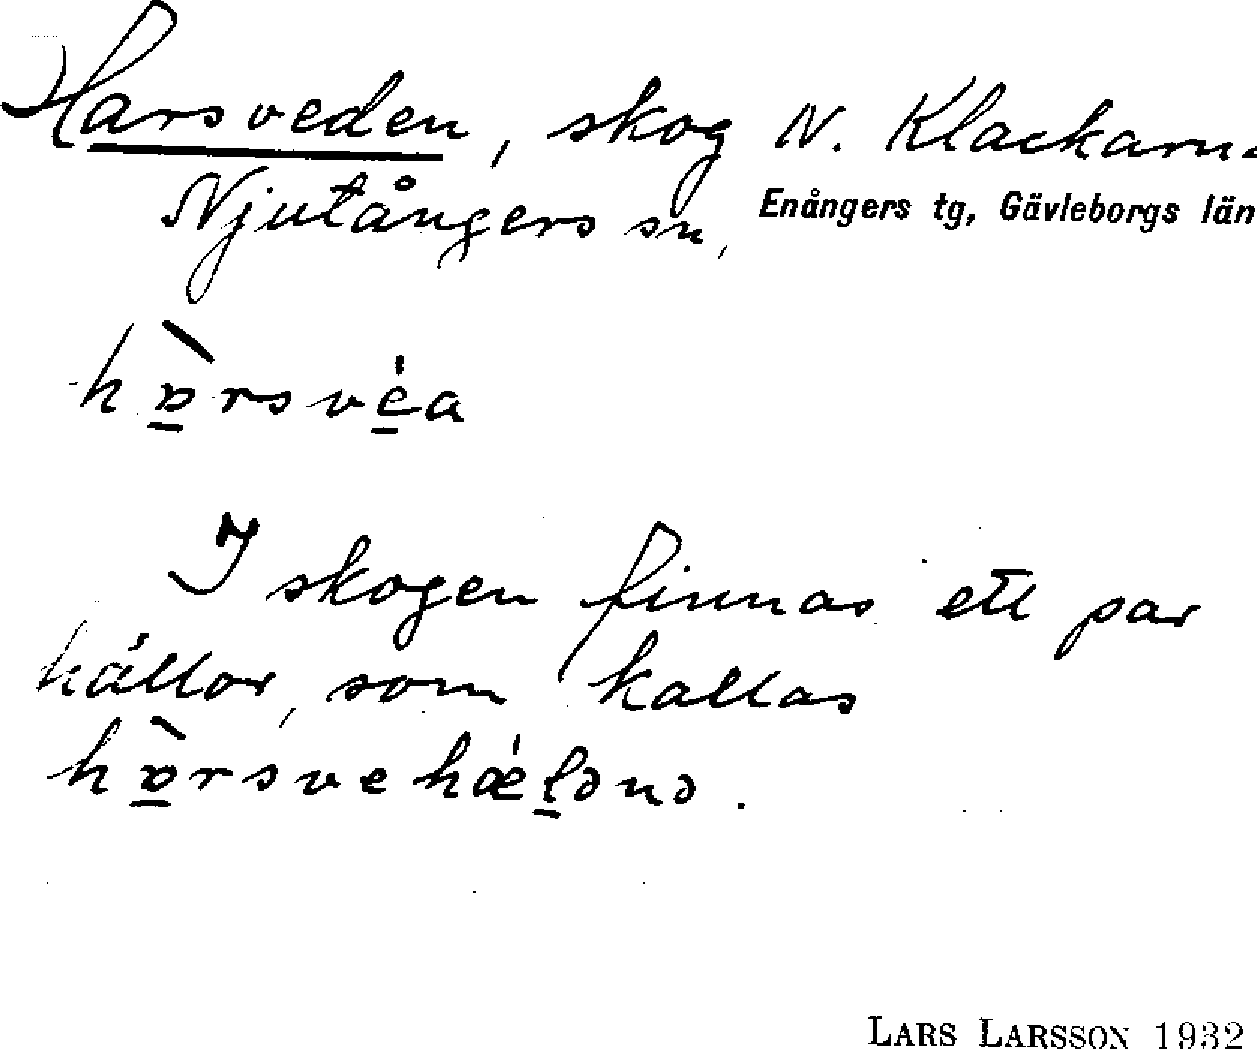 Harsveden, skog N. Klackarna
Njutångers sn, Enångers tg, Gävleborgs län
I skogen finnas ett par
källor, som kallas
LARS LARSSON 1932